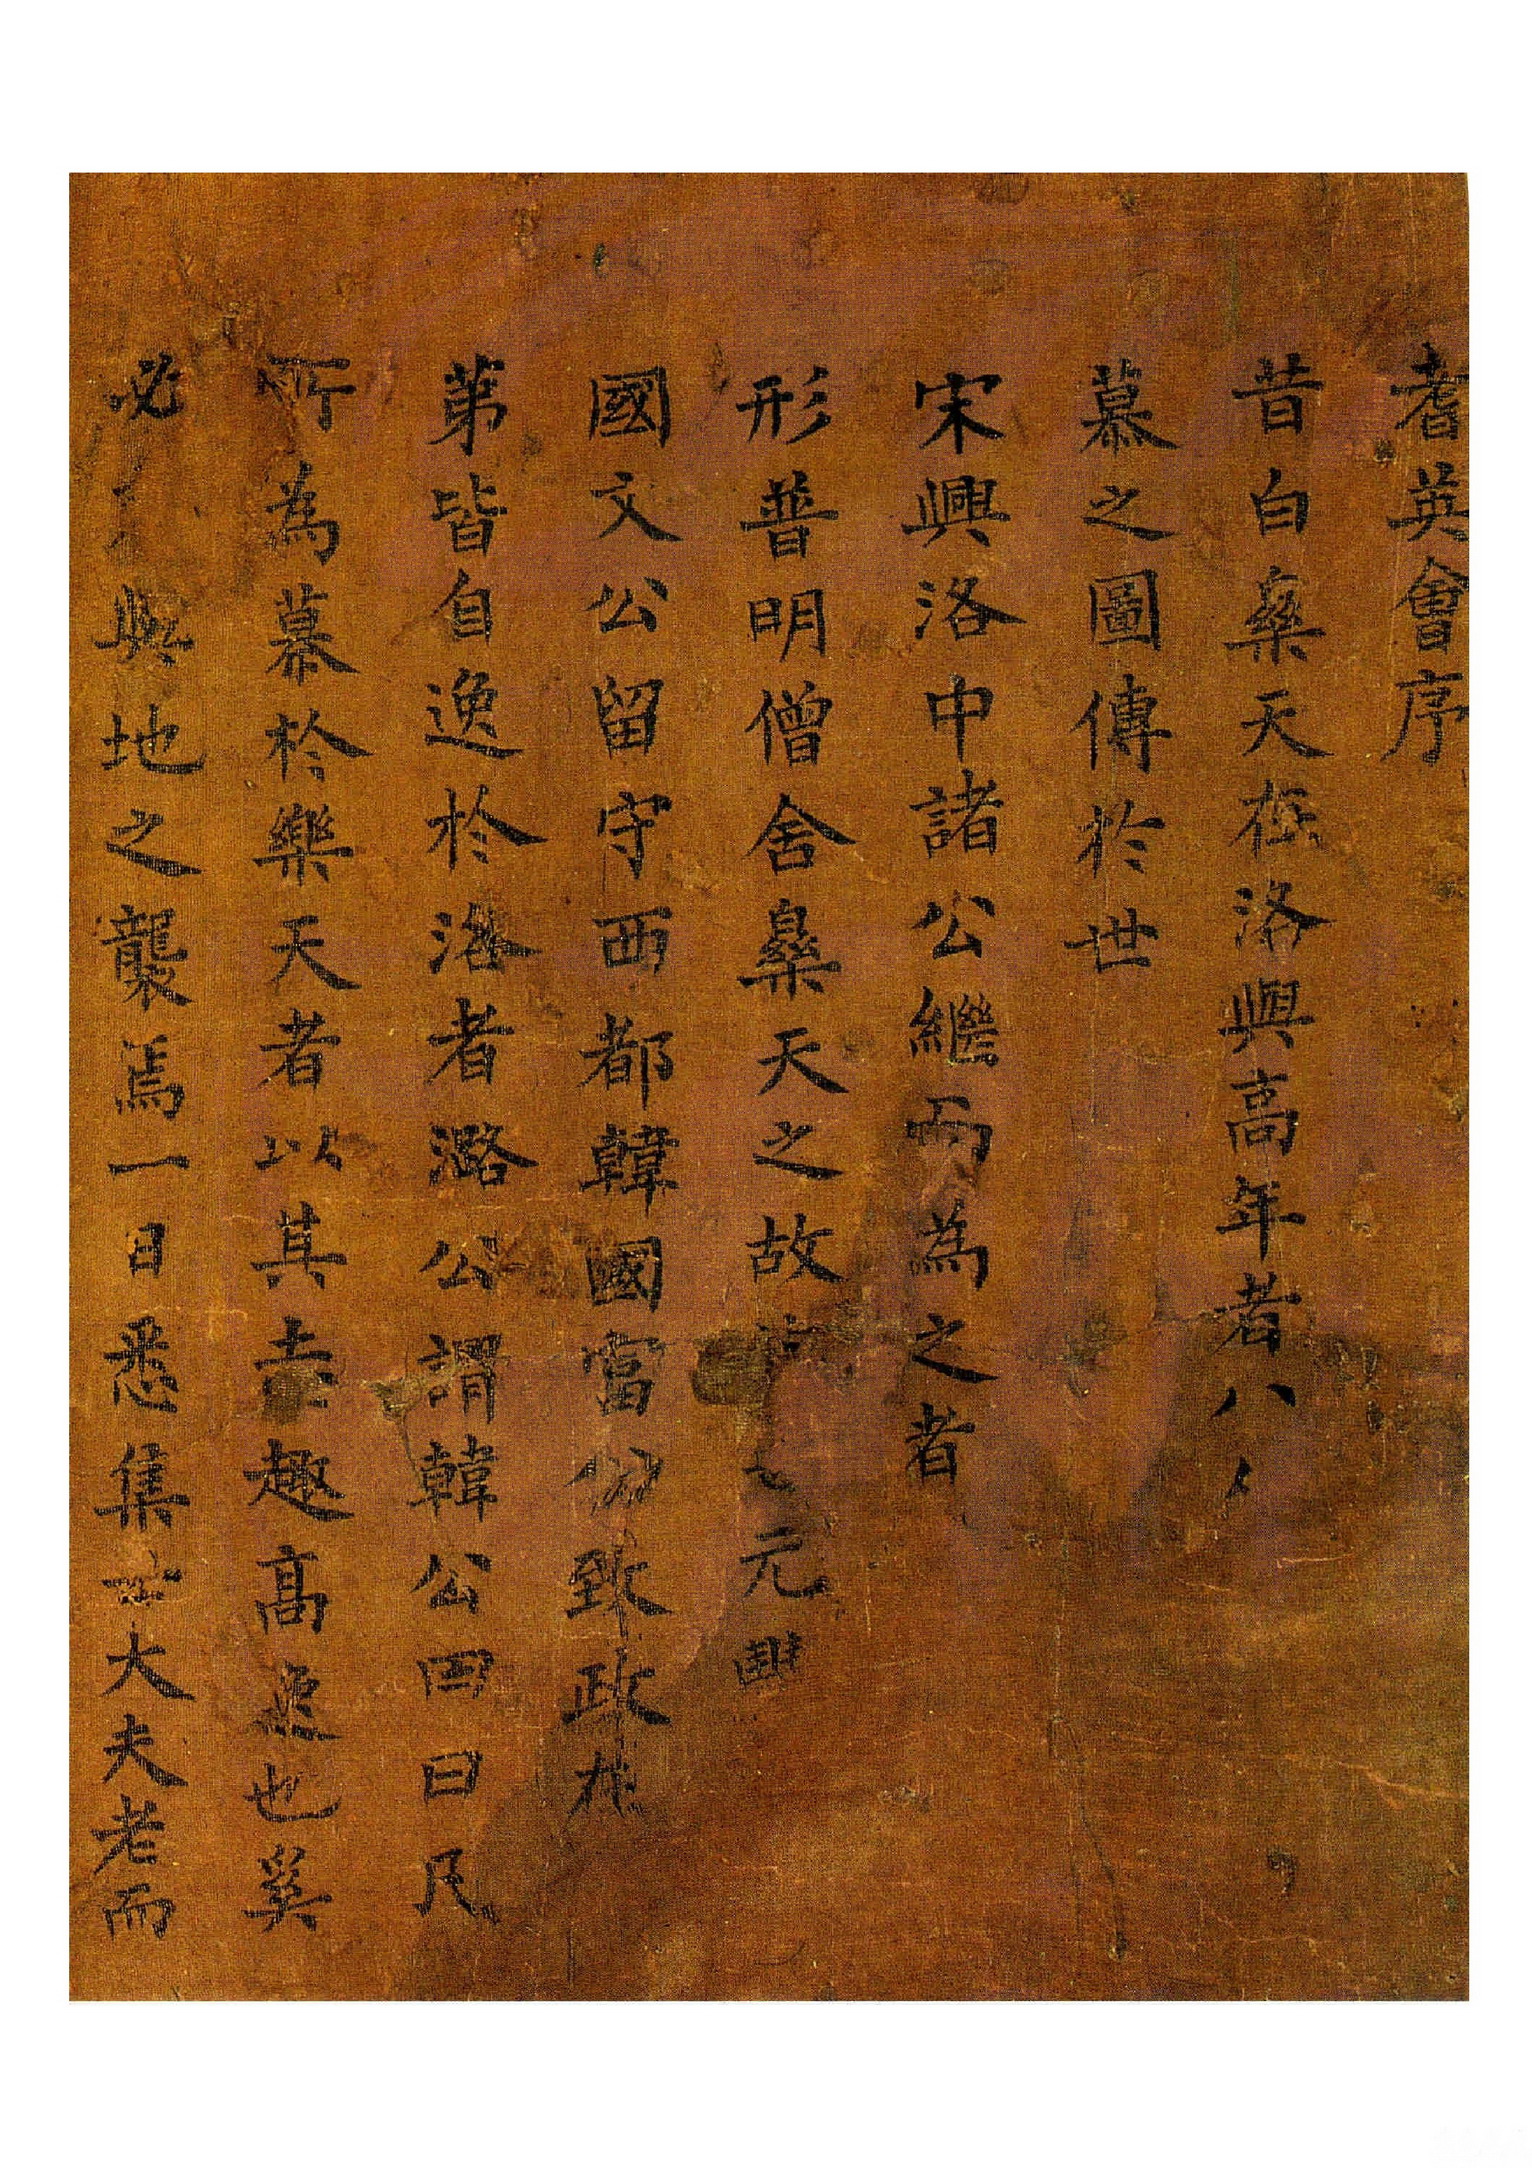 耆英會序
昔白樂天在洛與高年者八人
慕之圖傳於世
宋興洛中諸公繼而為之者
形普明僧舍樂天之故 元豐
國文公留守西都韓國富公致政在
第皆自逸於洛者潞公謂韓公曰凡
所為慕於樂天者以其志趣高逸也奚
必 與地之襲焉一日悉集士大夫老而